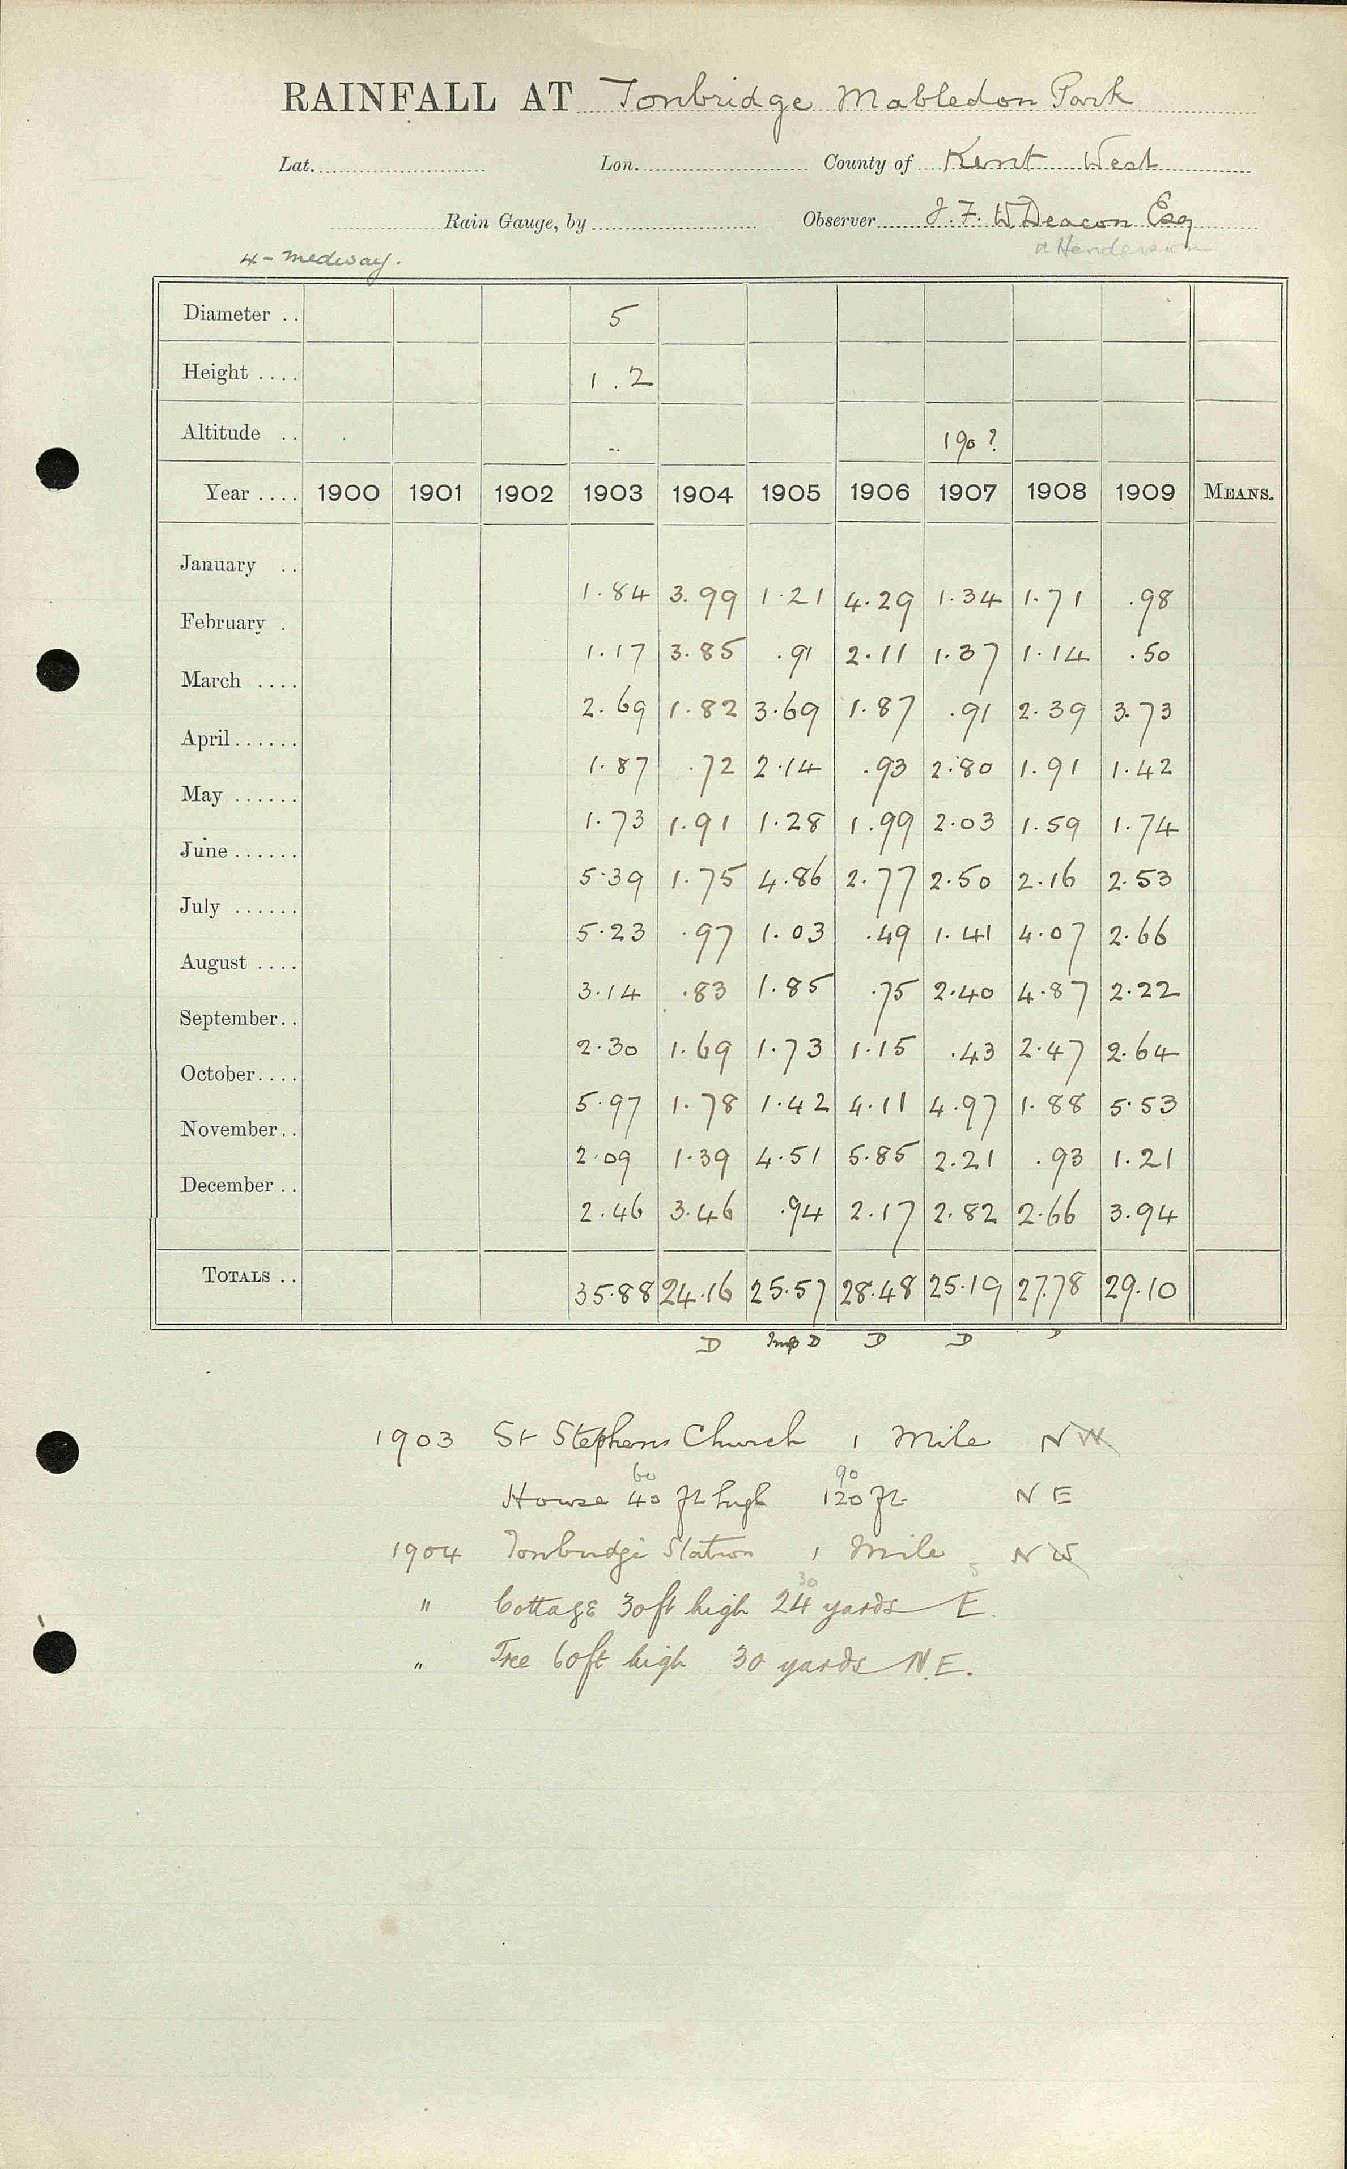 RAINFALL AT Tonbridge Mabledon Park
Lat. Lon. County of Kent West
Rain Gauge, by Observer J. F. W. Deacon Esq
4 - Medway. Henderson
Diameter .. 5
Height .... 1.2
Altitude .. 190?
Year .... 1900 1901 1902 1903 1904 1905 1906 1907 1908 1909 MEANS.
January .. 1.84 3.99 1.21 4.29 1.34 1.71 .98
February . 1.17 3.85 .91 2.11 1.37 1.14 .50
March .... 2.69 1.82 3.69 1.87 .91 2.39 3.73
April...... 1.87 .72 2.14 .93 2.80 1.91 1.42
May ...... 1.73 1.91 1.28 1.99 2.03 1.59 1.74
June...... 5.39 1.75 4.86 2.77 2.50 2.16 2.53
July ...... 5.23 .97 1.03 .49 1.41 4.07 2.66
August .... 3.14 .83 1.85 .75 2.40 4.87 2.22
September.. 2.30 1.69 1.73 1.15 .43 2.47 2.64
October.... 5.97 1.78 1.42 4.11 4.97 1.88 5.53
November.. 2.09 1.39 4.51 5.85 2.21 .93 1.21
December .. 2.46 3.46 .94 2.17 2.82 2.66 3.94
TOTALS .. 35.88 24.16 25.57 28.48 25.19 27.78 29.10
D Imp D D D
1903 St Stephens Church 1 Mile NW
60 90
House 40 ft high 120 ft. NE
1904 Tonbridge Station 1 Mile NW
30
" Cottage 30ft high 24 yards E.
" Tree 60ft high 30 yards N.E.